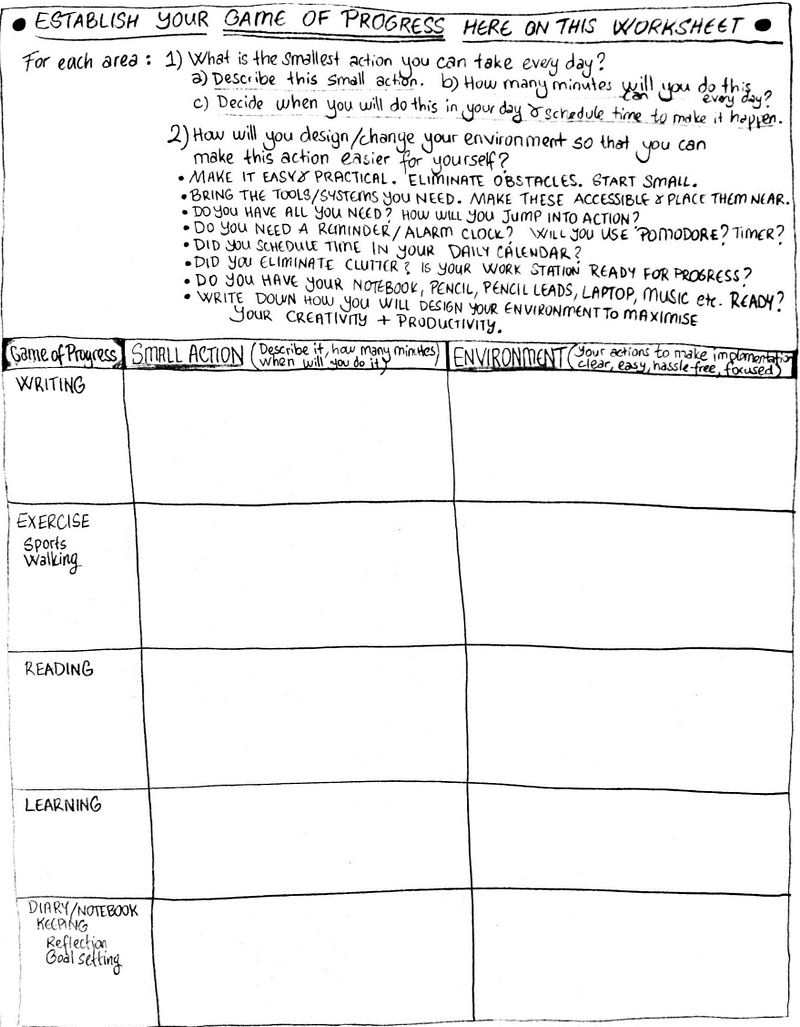 • ESTABLISH YOUR GAME OF PROGRESS HERE ON THIS WORKSHEET •
For each area: 1) What is the smallest action you can take every day?
a) Describe this small action. b) How many minutes will you do this
can every day?
c) Decide when you will do this in your day & schedule time to make it happen.
2) How will you design/change your environment so that you can
make this action easier for yourself?
• MAKE IT EASY & PRACTICAL. ELIMINATE OBSTACLES. START SMALL.
• BRING THE TOOLS/SYSTEMS YOU NEED. MAKE THESE ACCESSIBLE & PLACE THEM NEAR.
• DO YOU HAVE ALL YOU NEED? HOW WILL YOU JUMP INTO ACTION?
• DO YOU NEED A REMINDER/ALARM CLOCK? WILL YOU USE 'POMODORE? TIMER?
• DID YOU SCHEDULE TIME IN YOUR DAILY CALENDAR?
• DID YOU ELIMINATE CLUTTER? IS YOUR WORK STATION READY FOR PROGRESS?
• DO YOU HAVE YOUR NOTEBOOK, PENCIL, PENCIL LEADS, LAPTOP, MUSIC etc. READY?
• WRITE DOWN HOW YOU WILL DESIGN YOUR ENVIRONMENT TO MAXIMISE
YOUR CREATIVITY + PRODUCTIVITY.
Game of Progress SMALL ACTION (Describe it, how many minutes) ENVIRONMENT (Your actions to make implementation
when will you do it) clear, easy, hassle-free, focused)
WRITING
EXERCISE
Sports
Walking
READING
LEARNING
DIARY/NOTEBOOK
KEEPING
Reflection
Goal setting